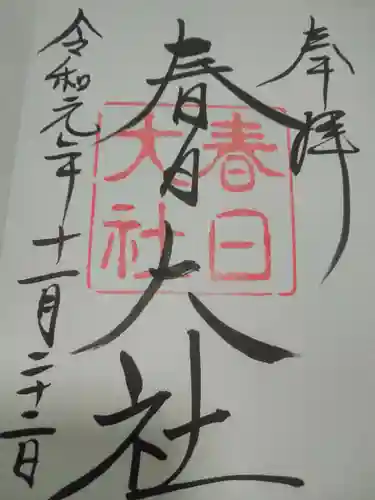 奉拝
春日大社
春日
大社
令和元年十一月二十二日